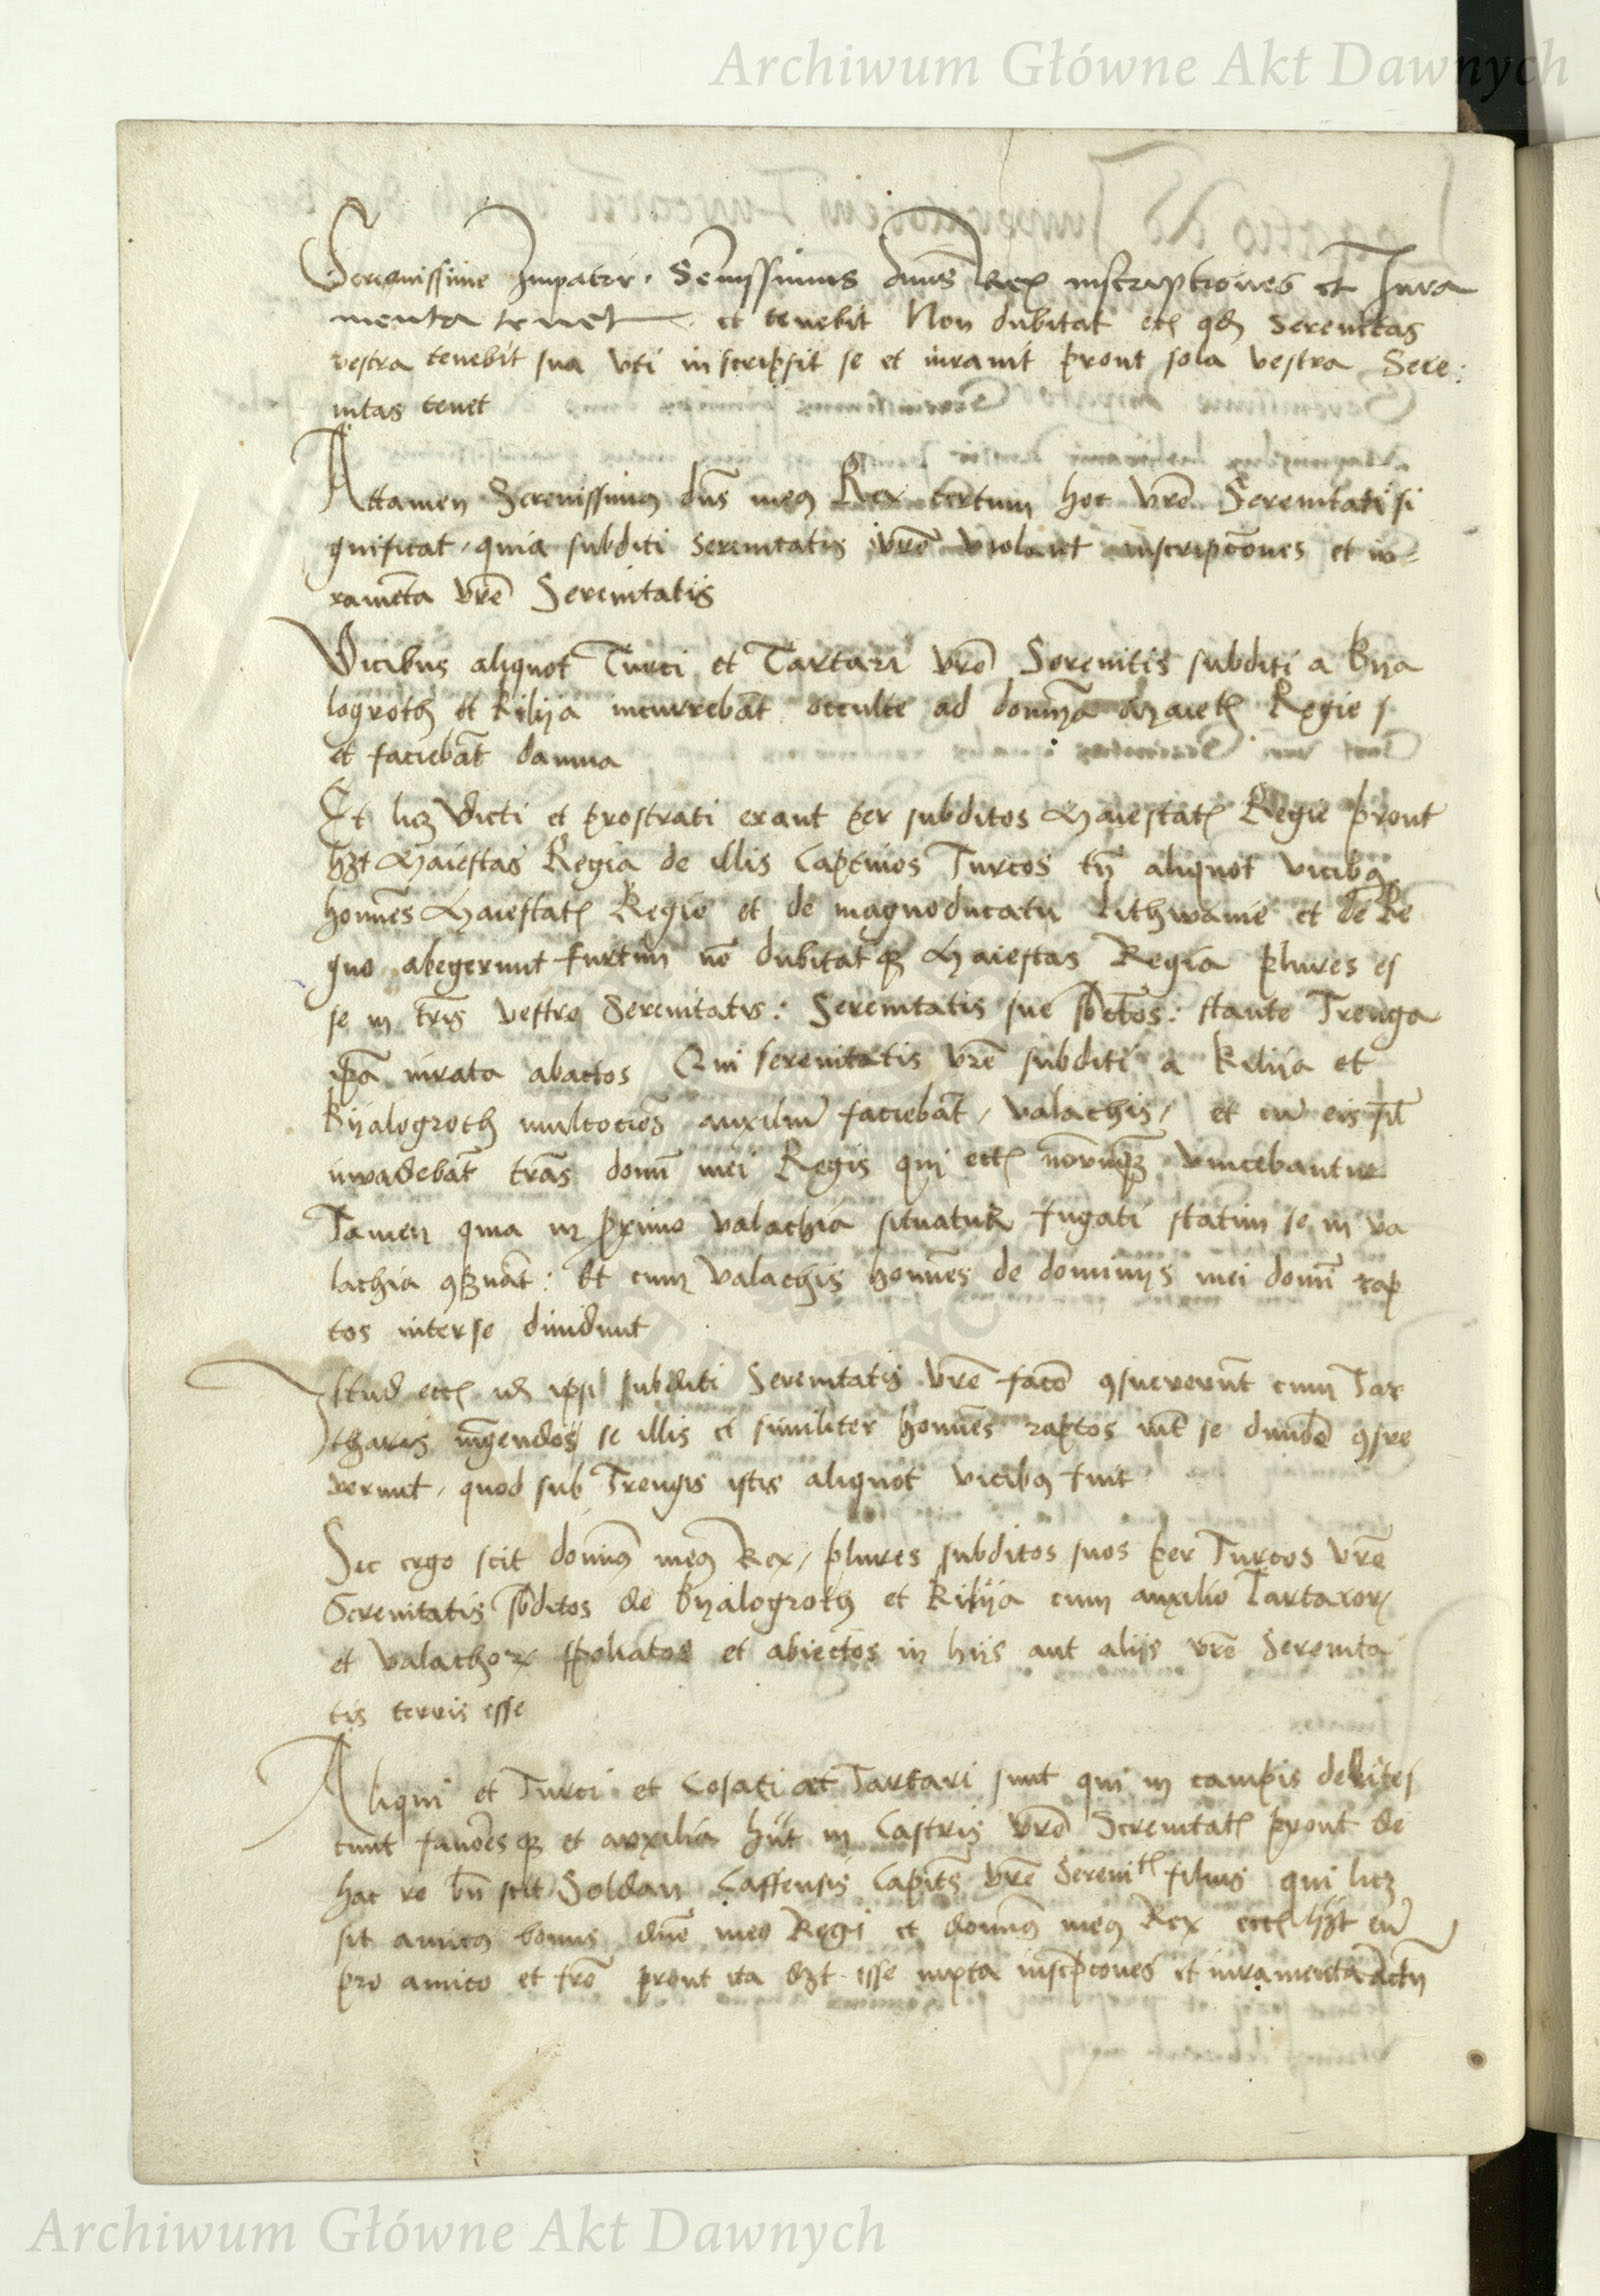 Archiwum Główne Akt Dawnych
Serenissime Impator. Serenissimus dnus Rex inscriptiones et Iura
menta tenet et tenebit Non dubitat etc qd Serenitas
vestra tenebit sua uti inscripsit se et iuravit prout sola vestra Sere:
nitas tenet
Attamen Serenissimus dns meus Rex certum hoc vre Serenitati si
gnificat, quia subditi serenitatis vre violant inscripcones et iu-
ramenta vre Serenitatis
Vicibus aliquot Turci et Tartari vre Serenitis subditi a Bya
logroth et Kilija incurrebat occulte ad domina Maietis Regie /
et faciebat damna
Et licz victi et prostrati erant per subditos Maiestatis Regie prout
hzt Maiestas Regia de illis Captivos Turcos tn aliquot vicibus
homines Maiestatis Regie et de magnoducatu Lithwanie et de Re
gno abegerunt furtim no dubitatqz Maiestas Regia plures es
se in tris vestre Serenitatis: Serenitatis sue sbctos: stante Treuga
ipa iurata abactos Qui serenitatis vre subditi a Kilija et
Byalogroth multocies auxiliu faciebat, valachis, et cu eis sil
invadebat tras domi mei Regis qui etc nonnuqz vincebantur
Tamen quia in primo valachia situatur fugati statim se in va
lachia conservat: Et cum Valachis homines de dominiis mei domi rap
tos inter se dividunt
Istud etc id ipsi subditi Serenitatis vre face consueverunt cum Tar
tharis iungendos se illis et similiter homines raptos int se divide consue
verunt, quod sub Treugis istis aliquot vicibus fuit
Sic ergo scit dominus meus Rex, plures subditos suos per Turcos vre
Serenitatis sbditos de Byalogroth et Kilija cum auxilio Tartaror
et valachor spoliatos et abiectos in hiis aut aliis vre Serenita
tis terris esse
Aliqui et Turci et Cosaci at Tartari sunt qui in campis delites
cunt favoresqz et auxilia hnt in Castris vre Serenitatis prout de
hac re bn scit Soldan Caffensis Capits vre Serenitis filius qui licz
sit amicus bonus dne meo Regi et dominus meus Rex etc hzt eu
pro amico et fre prout ita dzt esse iuxta inscpcones et iuramenta
Archiwum Główne Akt Dawnych